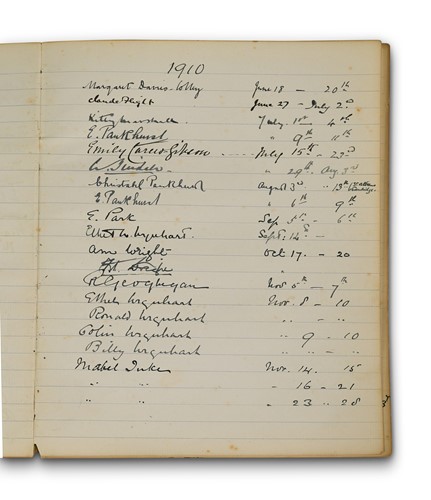 1910
Margaret Davies-Colley June 18 - 20th
Claude Flight June 27 - July 2nd
Kitty Marshall July 1st - 4th
E. Pankhurst " 9th 11th
Emily Carus Gibson ..... July 15th - 23rd
" 29th Aug 3rd
Christabel Pankhurst August 3rd 13th
E Pankhurst " 6th 9th
E. Park Sep. 3rd - 6th
Ethel M. Urquhart. Sept: 14th -
Ann Wright Oct 17. - 20
"
R Geoghegan Nov 5th - 7th
Ethel Urquhart Nov. 8 - 10
Ronald Urquhart " .. - ..
Colin Urquhart " 9 - 10
Billy Urquhart " .. - ..
Mabel Tuke Nov. 14. 15
" " " 16 - 21
" " " 23 28